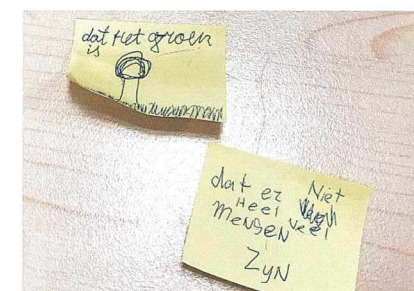 dat Het groen
is
dat er Niet
Heel veel
MeNSEN
ZyN